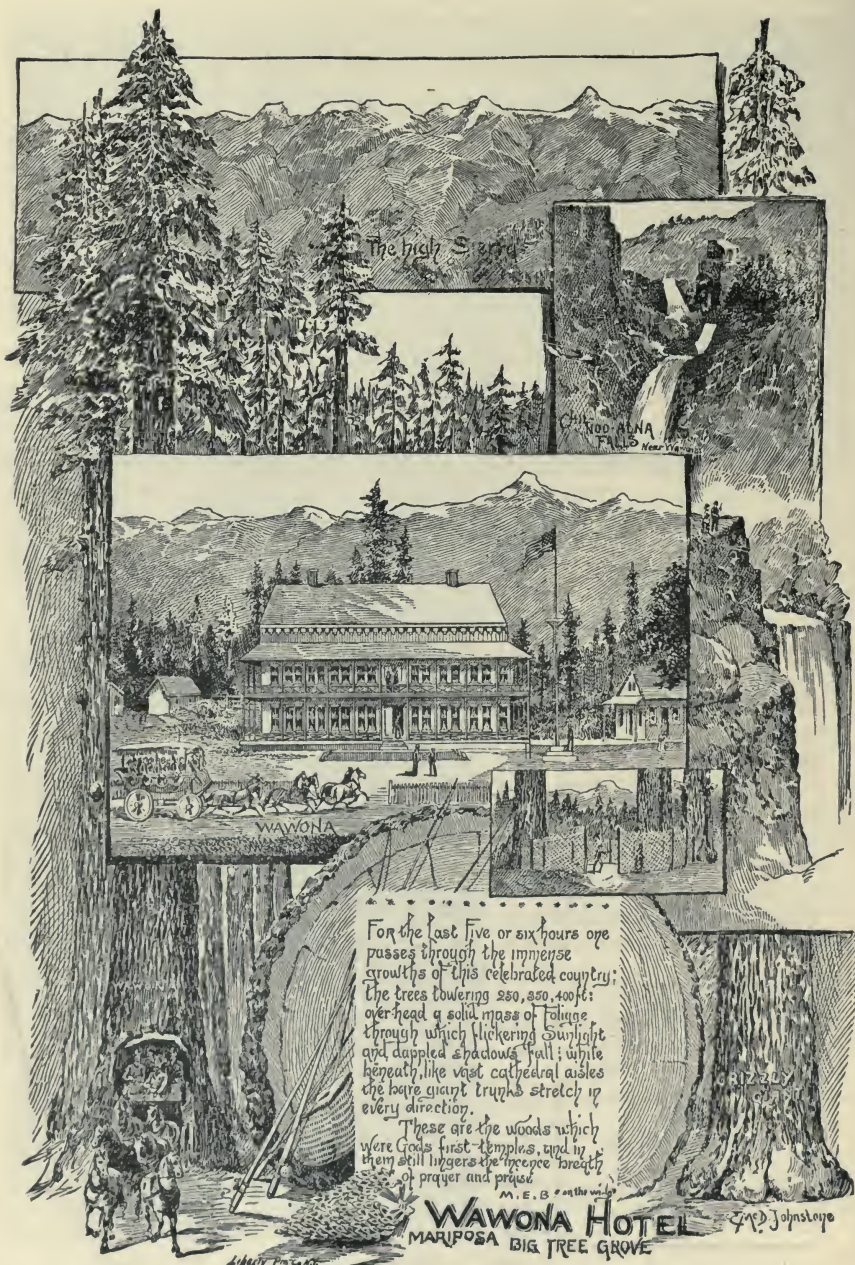 The high Sierra
Chil
NOO-ALNA
FALLS
Near
WAWONA
For the last Five or six hours one
passes through the immense
growths of this celebrated country;
the trees towering 250, 350, 400ft:
over-head a solid mass of Foliage
through which flickering Sunlight
and dappled shadows fall; while
beneath, like vast cathedral aisles
the bare giant trunks stretch in
every direction.
These are the woods which
were Gods first temples, and in
them still lingers the incence breath
of prayer and praise
M.E.B "on the wing"
WAWONA
GRIZZLY
WAWONA HOTEL
MARIPOSA BIG TREE GROVE
Johnstone
Liberty